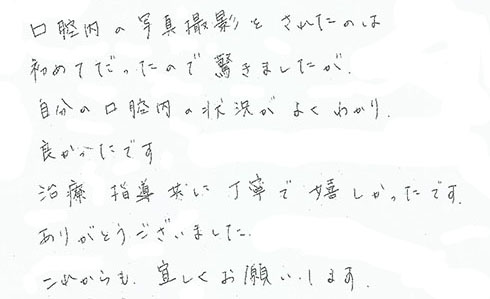 口腔内の写真撮影をされたのは
初めてだったので驚きましたが、
自分の口腔内の状況がよくわかり、
良かったです
治療 指導 共に 丁寧で 嬉しかったです。
ありがとうございました。
これからも、宜しくお願いします。